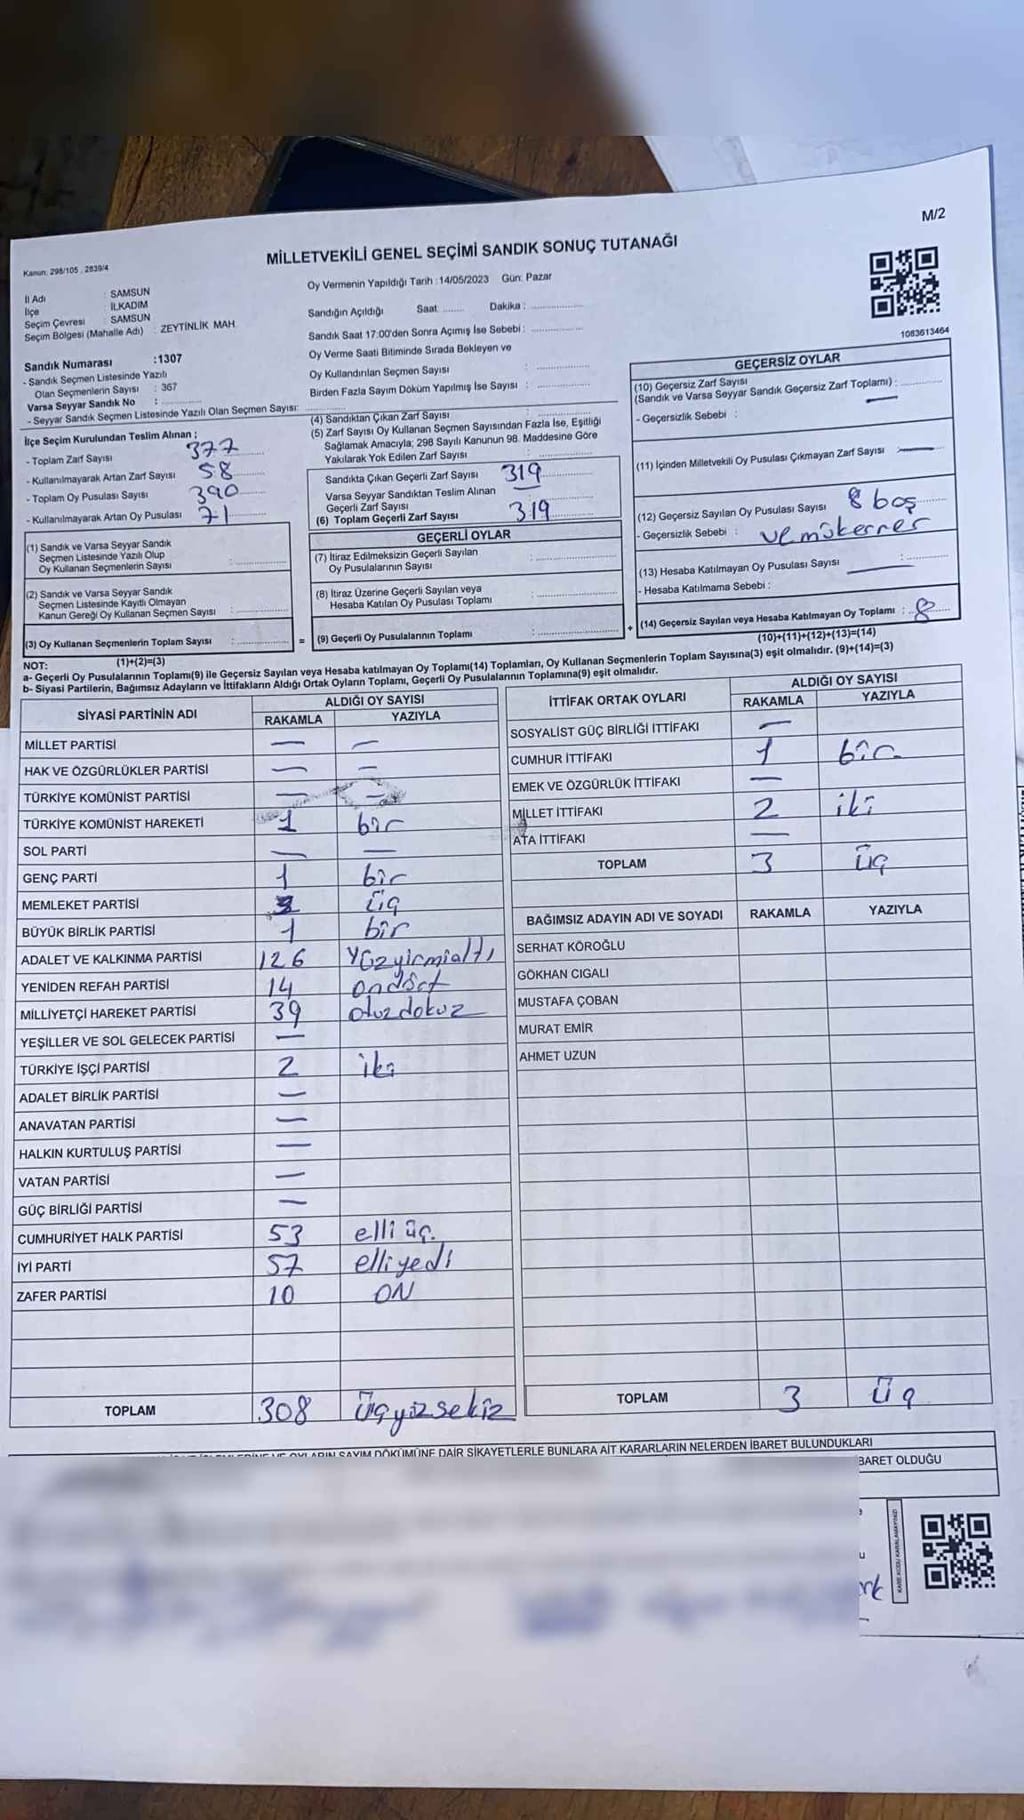 M/2
MİLLETVEKİLİ GENEL SEÇİMİ SANDIK SONUÇ TUTANAĞI
Kanun: 298/105 , 2839/4
İl Adı : SAMSUN
İlçe : İLKADIM
Seçim Çevresi : SAMSUN
Seçim Bölgesi (Mahalle Adı) : ZEYTİNLİK MAH.
Sandık Numarası :1307
- Sandık Seçmen Listesinde Yazılı
Olan Seçmenlerin Sayısı : 367
Varsa Seyyar Sandık No :
- Seyyar Sandık Seçmen Listesinde Yazılı Olan Seçmen Sayısı:
İlçe Seçim Kurulundan Teslim Alınan ;
- Toplam Zarf Sayısı 377
- Kullanılmayarak Artan Zarf Sayısı 58
- Toplam Oy Pusulası Sayısı 390
- Kullanılmayarak Artan Oy Pusulası 71
(1) Sandık ve Varsa Seyyar Sandık
Seçmen Listesinde Yazılı Olup
Oy Kullanan Seçmenlerin Sayısı :
(2) Sandık ve Varsa Seyyar Sandık
Seçmen Listesinde Kayıtlı Olmayan
Kanun Gereği Oy Kullanan Seçmen Sayısı :
(3) Oy Kullanan Seçmenlerin Toplam Sayısı :
(1)+(2)=(3)
Oy Vermenin Yapıldığı Tarih :14/05/2023 Gün: Pazar
Sandığın Açıldığı Saat Dakika :
Sandık Saat 17:00'den Sonra Açımış İse Sebebi :
Oy Verme Saati Bitiminde Sırada Bekleyen ve
Oy Kullandırılan Seçmen Sayısı :
Birden Fazla Sayım Döküm Yapılmış İse Sayısı :
(4) Sandıktan Çıkan Zarf Sayısı :
(5) Zarf Sayısı Oy Kullanan Seçmen Sayısından Fazla İse, Eşitliği
Sağlamak Amacıyla; 298 Sayılı Kanunun 98. Maddesine Göre
Yakılarak Yok Edilen Zarf Sayısı :
Sandıkta Çıkan Geçerli Zarf Sayısı 319
Varsa Seyyar Sandıktan Teslim Alınan
Geçerli Zarf Sayısı —
(6) Toplam Geçerli Zarf Sayısı 319
GEÇERLİ OYLAR
(7) İtiraz Edilmeksizin Geçerli Sayılan
Oy Pusulalarının Sayısı :
(8) İtiraz Üzerine Geçerli Sayılan veya
Hesaba Katılan Oy Pusulası Toplamı :
= (9) Geçerli Oy Pusulalarının Toplamı :
1083613464
GEÇERSİZ OYLAR
(10) Geçersiz Zarf Sayısı
(Sandık ve Varsa Seyyar Sandık Geçersiz Zarf Toplamı) : —
- Geçersizlik Sebebi :
(11) İçinden Milletvekili Oy Pusulası Çıkmayan Zarf Sayısı —
(12) Geçersiz Sayılan Oy Pusulası Sayısı 8 boş
- Geçersizlik Sebebi : ve mükerrer
(13) Hesaba Katılmayan Oy Pusulası Sayısı : —
- Hesaba Katılmama Sebebi :
+ (14) Geçersiz Sayılan veya Hesaba Katılmayan Oy Toplamı : 8
(10)+(11)+(12)+(13)=(14)
NOT:
a- Geçerli Oy Pusulalarının Toplamı(9) ile Geçersiz Sayılan veya Hesaba katılmayan Oy Toplamı(14) Toplamları, Oy Kullanan Seçmenlerin Toplam Sayısına(3) eşit olmalıdır. (9)+(14)=(3)
b- Siyasi Partilerin, Bağımsız Adayların ve İttifakların Aldığı Ortak Oyların Toplamı, Geçerli Oy Pusulalarının Toplamına(9) eşit olmalıdır.
SİYASİ PARTİNİN ADI ALDIĞI OY SAYISI
RAKAMLA YAZIYLA
MİLLET PARTİSİ — —
HAK VE ÖZGÜRLÜKLER PARTİSİ — —
TÜRKİYE KOMÜNİST PARTİSİ — —
TÜRKİYE KOMÜNİST HAREKETİ 1 bir
SOL PARTİ — —
GENÇ PARTİ 1 bir
MEMLEKET PARTİSİ 3 üç
BÜYÜK BİRLİK PARTİSİ 1 bir
ADALET VE KALKINMA PARTİSİ 126 Yüzyirmialtı
YENİDEN REFAH PARTİSİ 14 ondört
MİLLİYETÇİ HAREKET PARTİSİ 39 otuzdokuz
YEŞİLLER VE SOL GELECEK PARTİSİ —
TÜRKİYE İŞÇİ PARTİSİ 2 iki
ADALET BİRLİK PARTİSİ —
ANAVATAN PARTİSİ —
HALKIN KURTULUŞ PARTİSİ —
VATAN PARTİSİ —
GÜÇ BİRLİĞİ PARTİSİ —
CUMHURİYET HALK PARTİSİ 53 elli üç.
İYİ PARTİ 57 elliyedi
ZAFER PARTİSİ 10 ON
TOPLAM 308 Üçyüzsekiz
İTTİFAK ORTAK OYLARI ALDIĞI OY SAYISI
RAKAMLA YAZIYLA
SOSYALİST GÜÇ BİRLİĞİ İTTİFAKI —
CUMHUR İTTİFAKI 1 bir
EMEK VE ÖZGÜRLÜK İTTİFAKI —
MİLLET İTTİFAKI 2 iki
ATA İTTİFAKI —
TOPLAM 3 üç
BAĞIMSIZ ADAYIN ADI VE SOYADI RAKAMLA YAZIYLA
SERHAT KÖROĞLU
GÖKHAN CIGALI
MUSTAFA ÇOBAN
MURAT EMİR
AHMET UZUN
TOPLAM 3 Üç
OYLARIN SAYIM DÖKÜMÜNE DAİR ŞİKAYETLERLE BUNLARA AİT KARARLARIN NELERDEN İBARET BULUNDUKLARI
BARET OLDUĞU